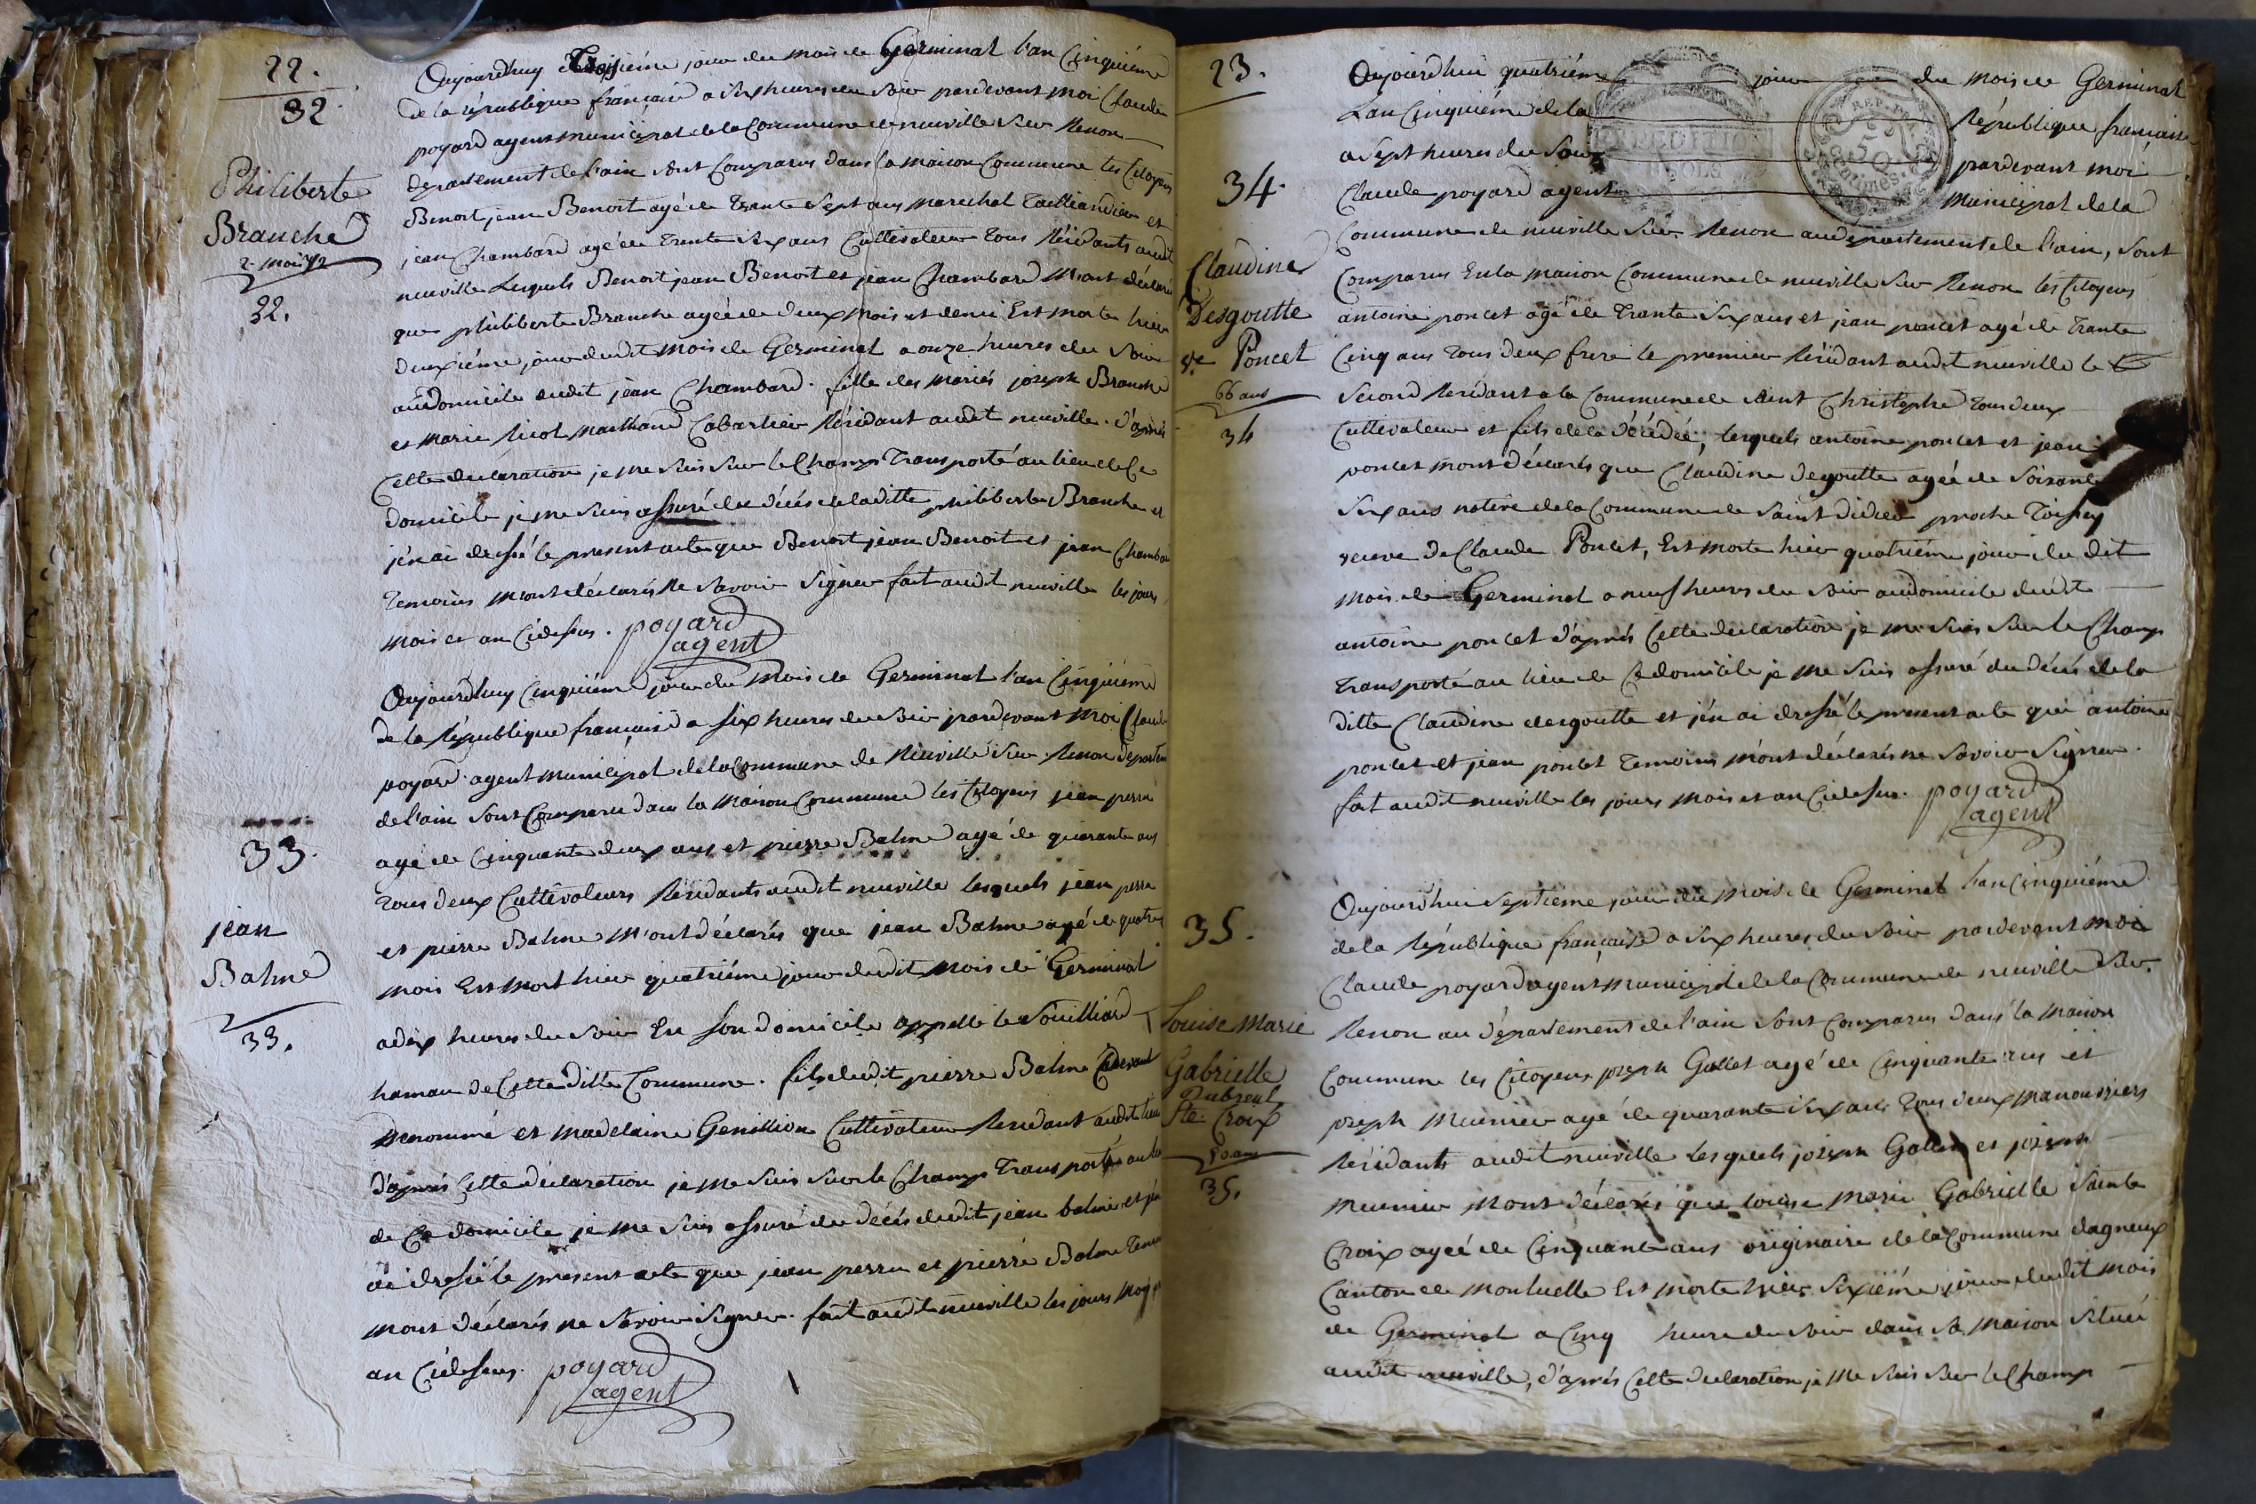 22.
32
Philiberte
Branche
2. mois 1/2
32.
Aujourdhuy Troisiéme jour du mois de Germinal l'an Cinquiéme
de la république française a six heures du soir pardevant moi Claude
poyard agent municipal de la Commune de neuville sur Renon
département de l'ain sont Comparus dans la maison Commune les Citoyens
Benoit jean Benoit agé de Trante sept ans marechal Tailliandier et
jean Chambard agé de Trante six ans Cultivateur tous Résidants audit
neuville Lesquels Benoit jean Benoit et jean Chambard M'ont déclaré
que philiberte Branche agée de deux mois et demi Est morte hier
deuxiéme jour dudit mois de Germinal a onze heures du soir
au domicile dudit jean Chambard. fille des mariés joseph Branche
et marie Ricol marchand Cabartier Résidant audit neuville. d'aprés
Cette declaration je me suis sur le Champ Transporté au lieu de Ce
domicile je me suis assuré du décés de laditte philiberte Branche et
j'en ai dressé le present acte que Benoit jean Benoit et jean Chambar
Temoins m'ont déclarés Ne savoir signer fait audit neuville les jours
mois et an Cidessus. poyard
agent
33.
jean
Balme
33.
Aujourdhuy Cinquiéme jour du mois de Germinal l'an Cinquiéme
de la République française a six heures du soir pardevant moi Claude
poyard agent municipal de la Commune de Neuville sur Renon departem
de l'ain sont Comparu dans la Maison Commune les Citoyens jean perru
agé de Cinquante deux ans et pierre Balme agé de quarante ans
tous deux Cultivateurs Résidants audit neuville lesquels jean perru
et pierre Balme M'ont déclarés que jean Balme agé de quatre
mois Est mort hier quatriéme jour dudit mois de Germinal
a dix heures du soir En son domicile appellé le Souilliard
hamau de Cette ditte Commune. fils dudit pierre Balme Cidevant
denommé et madelaine Genillion Cultivateur Residant audit lieu
d'aprés Cette déclaration je me suis sur le Champ Transporté au lieu
de Ce domicile je me suis assuré du décés dudit jean balme et j'en
ai dressé le present acte que jean perru et pierre Balme Temoin
m'ont déclarés ne savoir signer. fait audit neuville les jours moy et
an Cidessus. poyard
agent
23.
34.
Claudine
Desgoutte
ve. Poncet
66 ans
34
Aujourdhui quatriéme jour du mois de Germinal
L'an Cinquiéme de la République française
a sept heures du soir pardevant moi
Claude poyard agent Municipal de la
Commune de neuville sur Renon audépartement de l'ain, sont
Comparus En la maison Commune de neuville sur Renon les Citoyens
antoine poncet agé de Trante six ans et jean poncet agé de Trante
Cinq ans tous deux frere le premier Résidant audit neuville le
second Residant a la Commune de saint Christophe tous deux
Cultivateur et fils de la décédée, lesquels antoine poncet et jean
poncet m'ont déclarés que Claudine degoutte agée de soixante
six ans native de la Commune de saint didier proche Toissey
veuve de Claude Poncet, Est morte hier quatriéme jour du dit
mois de Germinal a neuf heures du soir audomicile dudit
antoine poncet d'aprés Cette declaration je me suis sur le Champ
Transporté au lieu de Ce domicile je me suis assuré du décés de la
ditte Claudine desgoutte et j'en ai dressé le present acte que antoine
poncet et jean poncet Temoins m'ont déclarés ne savoir signer.
fait audit neuville les jours mois et an Cidessus. poyard
agent
35.
Louise Marie
Gabrielle
Dubreul
Ste. Croix
50 ans
35.
Aujourdhui septieme jour du mois de Germinal l'an Cinquiéme
de la République française a six heures du soir pardevant moi
Claude poyard agent municipal de la Commune de neuville sur
Renon au département de l'ain sont Comparus dans la maison
Commune les Citoyens joseph Gallet agé de Cinquante ans et
joseph Meunier agé de quarante six ans tous deux manouvriers
Résidants audit neuville lesquels joseph Gallet et joseph
meunier m'ont déclarés que louise marie Gabrielle sainte
Croix agée de Cinquante ans originaire de la Commune dagneux
Canton de Monluelle Est morte hier sixiéme jour dudit mois
de Germinal a Cinq heure du soir dans sa maison située
audit neuville, d'aprés Cette declaration je me suis sur le Champ